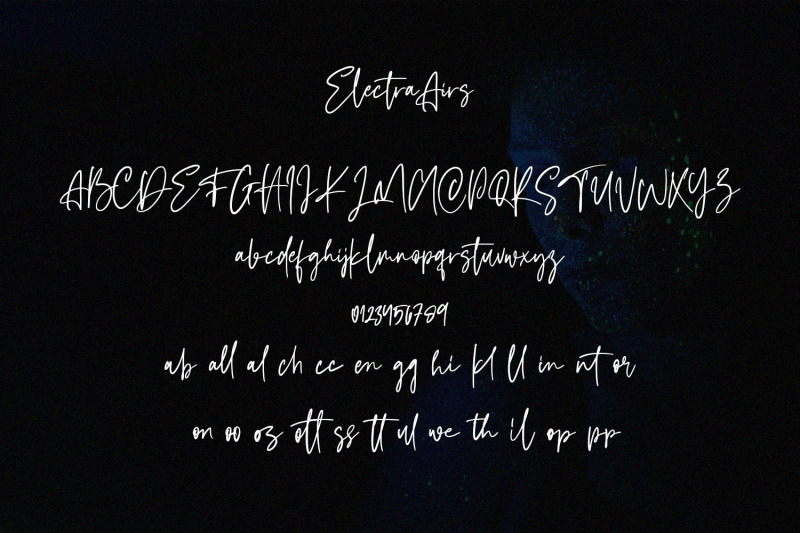 ElectraAirs
ABCDEFGHIJKLMNOPQRSTUVWXYZ
abcdefghijklmnopqrstuvwxyz
0123456789
ab all al ch cc en gg hi kl ll in nt or
on oo oz ott ss tt ul we th il op pp